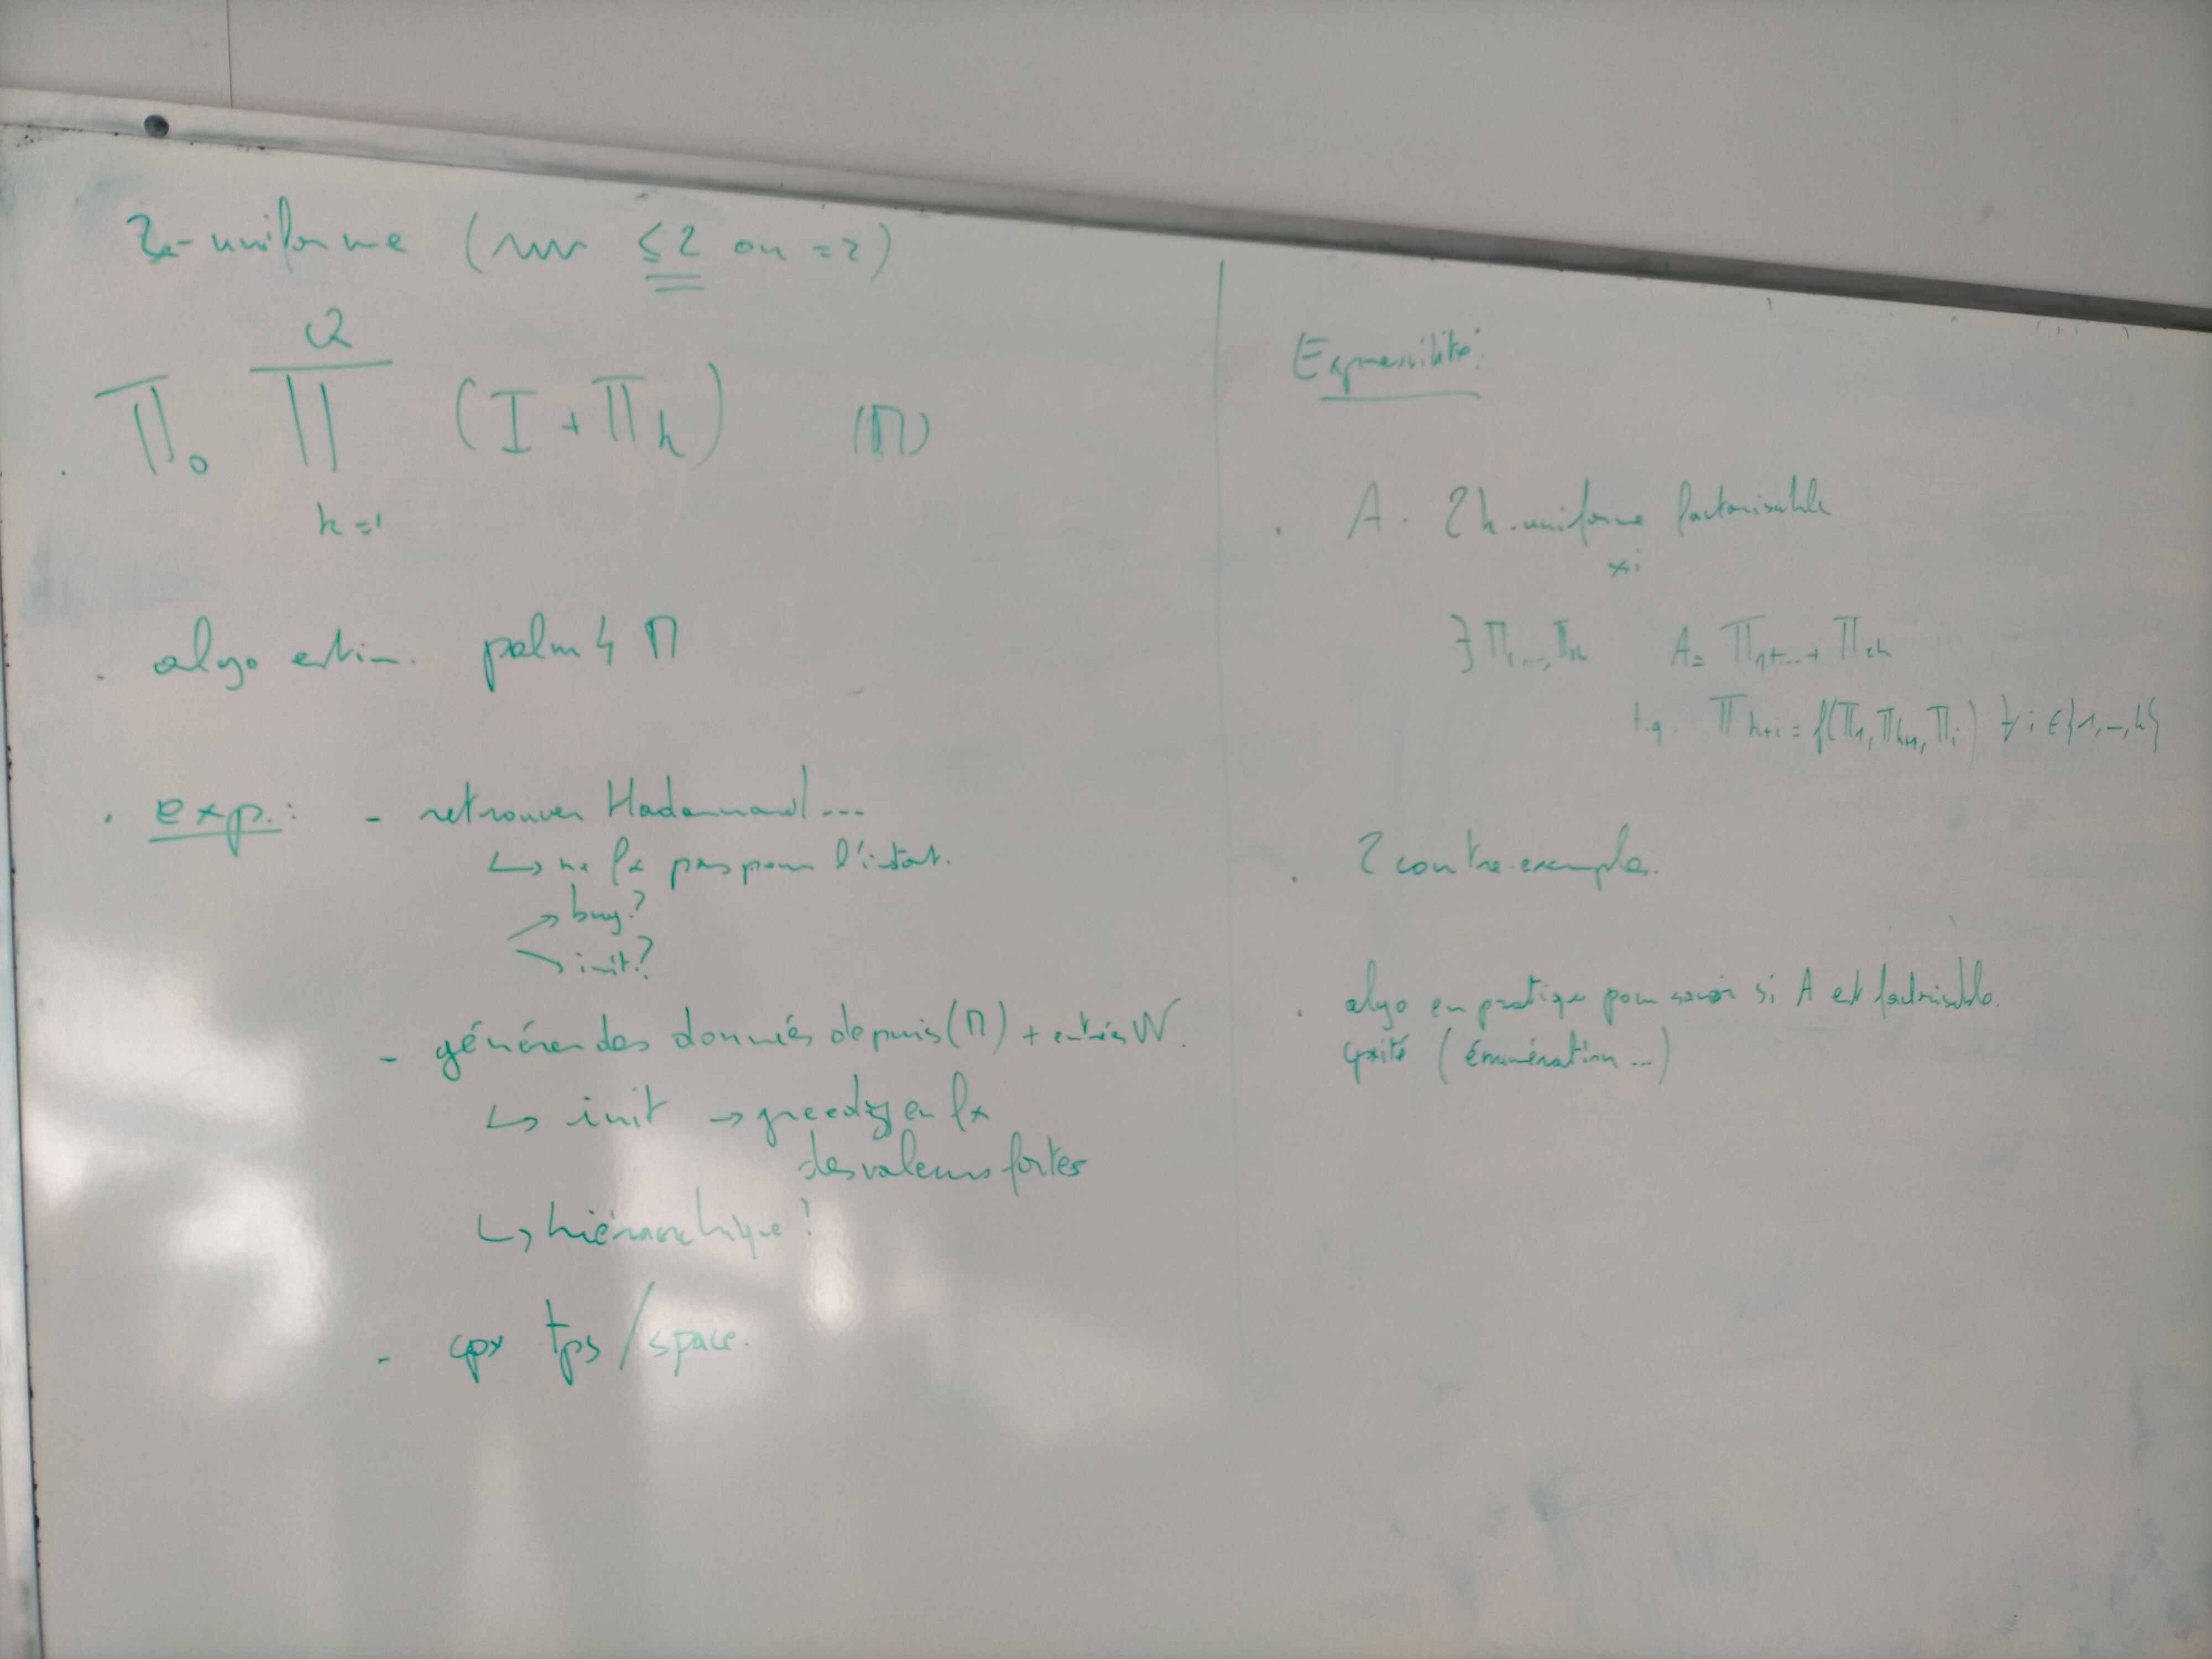 2-uniforme ( ≤2 ou =2)
Q
Π₀ ∏ (I + Π_k) (Π)
k=1
. algo estim. palm4Π
. exp.: - retrouver Hadamard...
↳ ne fx pas pour l'instant.
→ bug?
→ init?
- générer des données depuis (Π) + entrées W.
↳ init → greedy en fx
des valeurs fortes
↳ hiérarchique?
- cpx tps/space.
Expressilité:
. A. 2k-uniforme factorisable
ssi
∃ Π₁,...,Π₂ₖ A = Π₁+...+Π₂ₖ
t.q. Π_{k+i} = f(Π₁, Π_{k+1}, Π_i) ∀ i ∈ {1,-,k}
. 2 contre-exemples.
. algo en pratique pour savoir si A est factorisable.
cpxité (énumération...)